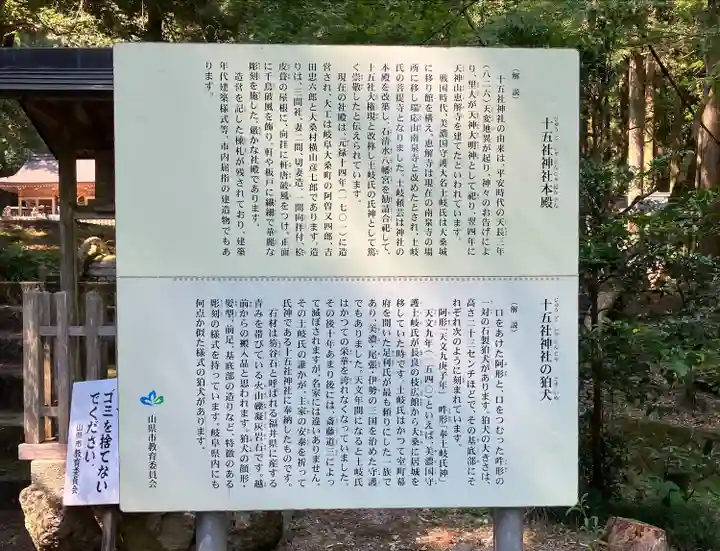 十五社神社本殿
じゅうごしゃじんじゃほんでん
(解説)
十五社神社の由来は、平安時代の天長三年
(八二六)天変地異が起り、神々のお告げによ
り、里人が天神大明神として祀り、翌四年に
天神山恵解寺を建てたといわれています。
戦国時代、美濃国守護大名土岐氏は大桑城
に移り館を構え、恵解寺は現在の南泉寺の場
所に移し瑞応山南泉寺と改めたとされ、土岐
氏の菩提寺となりました。土岐頼芸は神社の
本殿を改築し、石清水八幡宮を勧請合祀して、
十五社大権現と改称し土岐氏の氏神として篤
く崇敬したと伝えられています。
現在の社殿は、元禄十四年(一七〇一)に造
営され、大工は岐阜大桑町の阿曽又四郎、吉
田忠六郎と大桑村横山彦七郎であります。造
りは、三間社、妻二間、切妻造、一間向拝付、桧
皮葺の屋根に、向拝に軒唐破風をつけ、正面
に千鳥破風を飾り、軒や板戸に繊細で華麗な
彫刻を施した、厳かな社殿であります。
造営を記した棟札が残されており、建築
年代建築様式等、市内屈指の建造物でもあ
ります。
十五社神社の狛犬
じゅうごしゃじんじゃ こまいぬ
(解説)
口をあけた阿形と、口をつむった吽形の
一対の石製狛犬があります。狛犬の大きさは、
高さ二十三センチほどで、その基底部にそ
れぞれ次のように刻まれています。
阿形「天文九庚子年」 吽形「奉土岐氏神」
天文九年(一五四〇)といえば、美濃国守
護土岐氏が長良の枝広館から大桑に居城を
移していた時です。土岐氏はかつて室町幕
府を開いた足利氏が最も頼りにした一族で
あり、美濃・尾張・伊勢の三国を治めた守護
でもありました。天文年間になると土岐氏
はかつての栄華を誇れなくなっていました。
その後十年あまり後には、斎藤道三によっ
て滅ぼされますが、名家には違いありません。
その土岐氏の誰かが、土家の安泰を祈って
氏神である十五社神社に奉納したものです。
石材は笏谷石と呼ばれる福井県に産する
青みを帯びている火山礫凝灰岩石です。越
前からの搬入品と思われます。狛犬の顔形・
髪型、前足、基底部の造りなど、特徴のある
彫刻の様式を持っています。岐阜県内にも
何点か似た様式の狛犬があります。
山県市教育委員会
ゴミを捨てない
でください。
山県市教育委員会